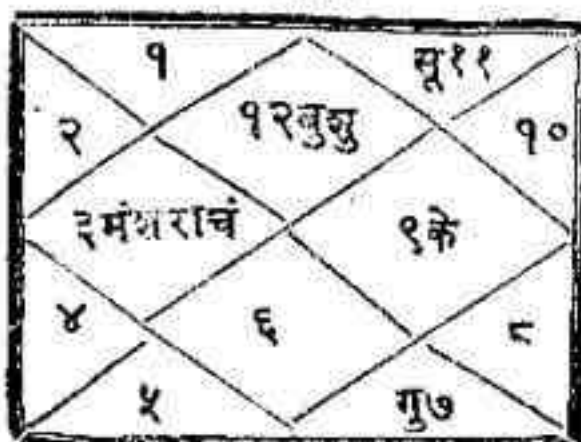 १ सू११
२ १२बुशु १०
३मंशराचं ९के
४ ६ ८
५ गु७